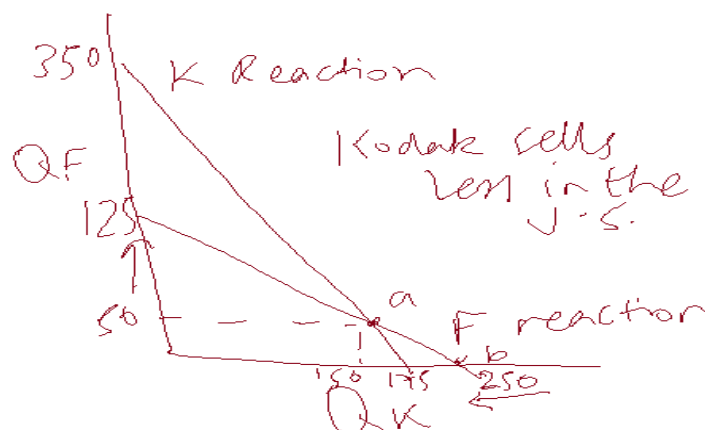 350
K Reaction
QF
Kodak sells
less in the
U.S.
125
a
50
F reaction
b
150 175 250
QK